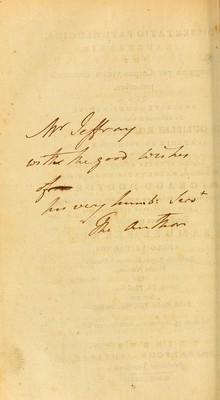 Mr Jeffray
with the good wishes
of
his very humb: Servt
The author